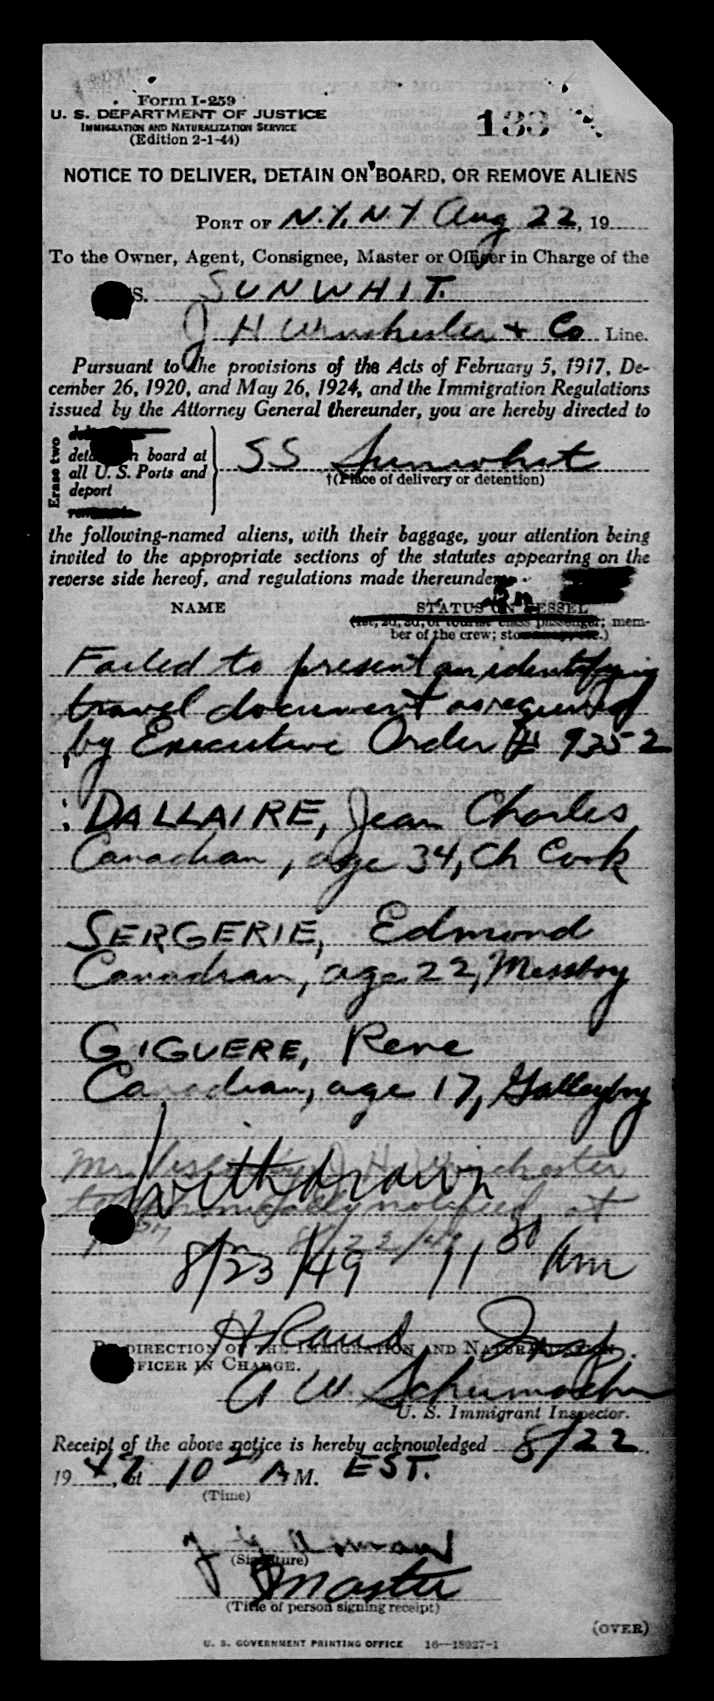 Form I-259
U. S. DEPARTMENT OF JUSTICE
IMMIGRATION AND NATURALIZATION SERVICE
(Edition 2-1-44)
133
NOTICE TO DELIVER, DETAIN ON BOARD, OR REMOVE ALIENS
PORT OF N.Y. N.Y Aug 22, 19
To the Owner, Agent, Consignee, Master or Officer in Charge of the
S. SUNWHIT.
J H Winchester + Co Line.
Pursuant to the provisions of the Acts of February 5, 1917, De-
cember 26, 1920, and May 26, 1924, and the Immigration Regulations
issued by the Attorney General thereunder, you are hereby directed to
Erase two
board at
all U. S. Ports and
deport
SS Sunwhit
†(Place of delivery or detention)
the following-named aliens, with their baggage, your attention being
invited to the appropriate sections of the statutes appearing on the
reverse side hereof, and regulations made thereunder.
NAME STATUS ON VESSEL
(1st, 2d, 3d, or tourist class passenger; mem-
ber of the crew;
Failed to present an identifying
travel document as required
by Executive Order # 9352
DALLAIRE, Jean Charles
Canadian, age 34, Ch Cook
SERGERIE, Edmond
Canadian, age 22, Messboy
GIGUERE, Rene
Canadian, age 17, Galleyboy
Mr. J. H. Winchester
Withdrawn
telephonically notified at
8/22/49
8/23/49 11 30 Am
H Insp.
BY DIRECTION OF THE IMMIGRATION AND NATURALIZATION
OFFICER IN CHARGE.
A W Schumacher
U. S. Immigrant Inspector.
Receipt of the above notice is hereby acknowledged 8/22
19 49, at 10 A M. EST.
(Time)
(Signature)
Master
(Title of person signing receipt)
(OVER)
U. S. GOVERNMENT PRINTING OFFICE 16—18927-1